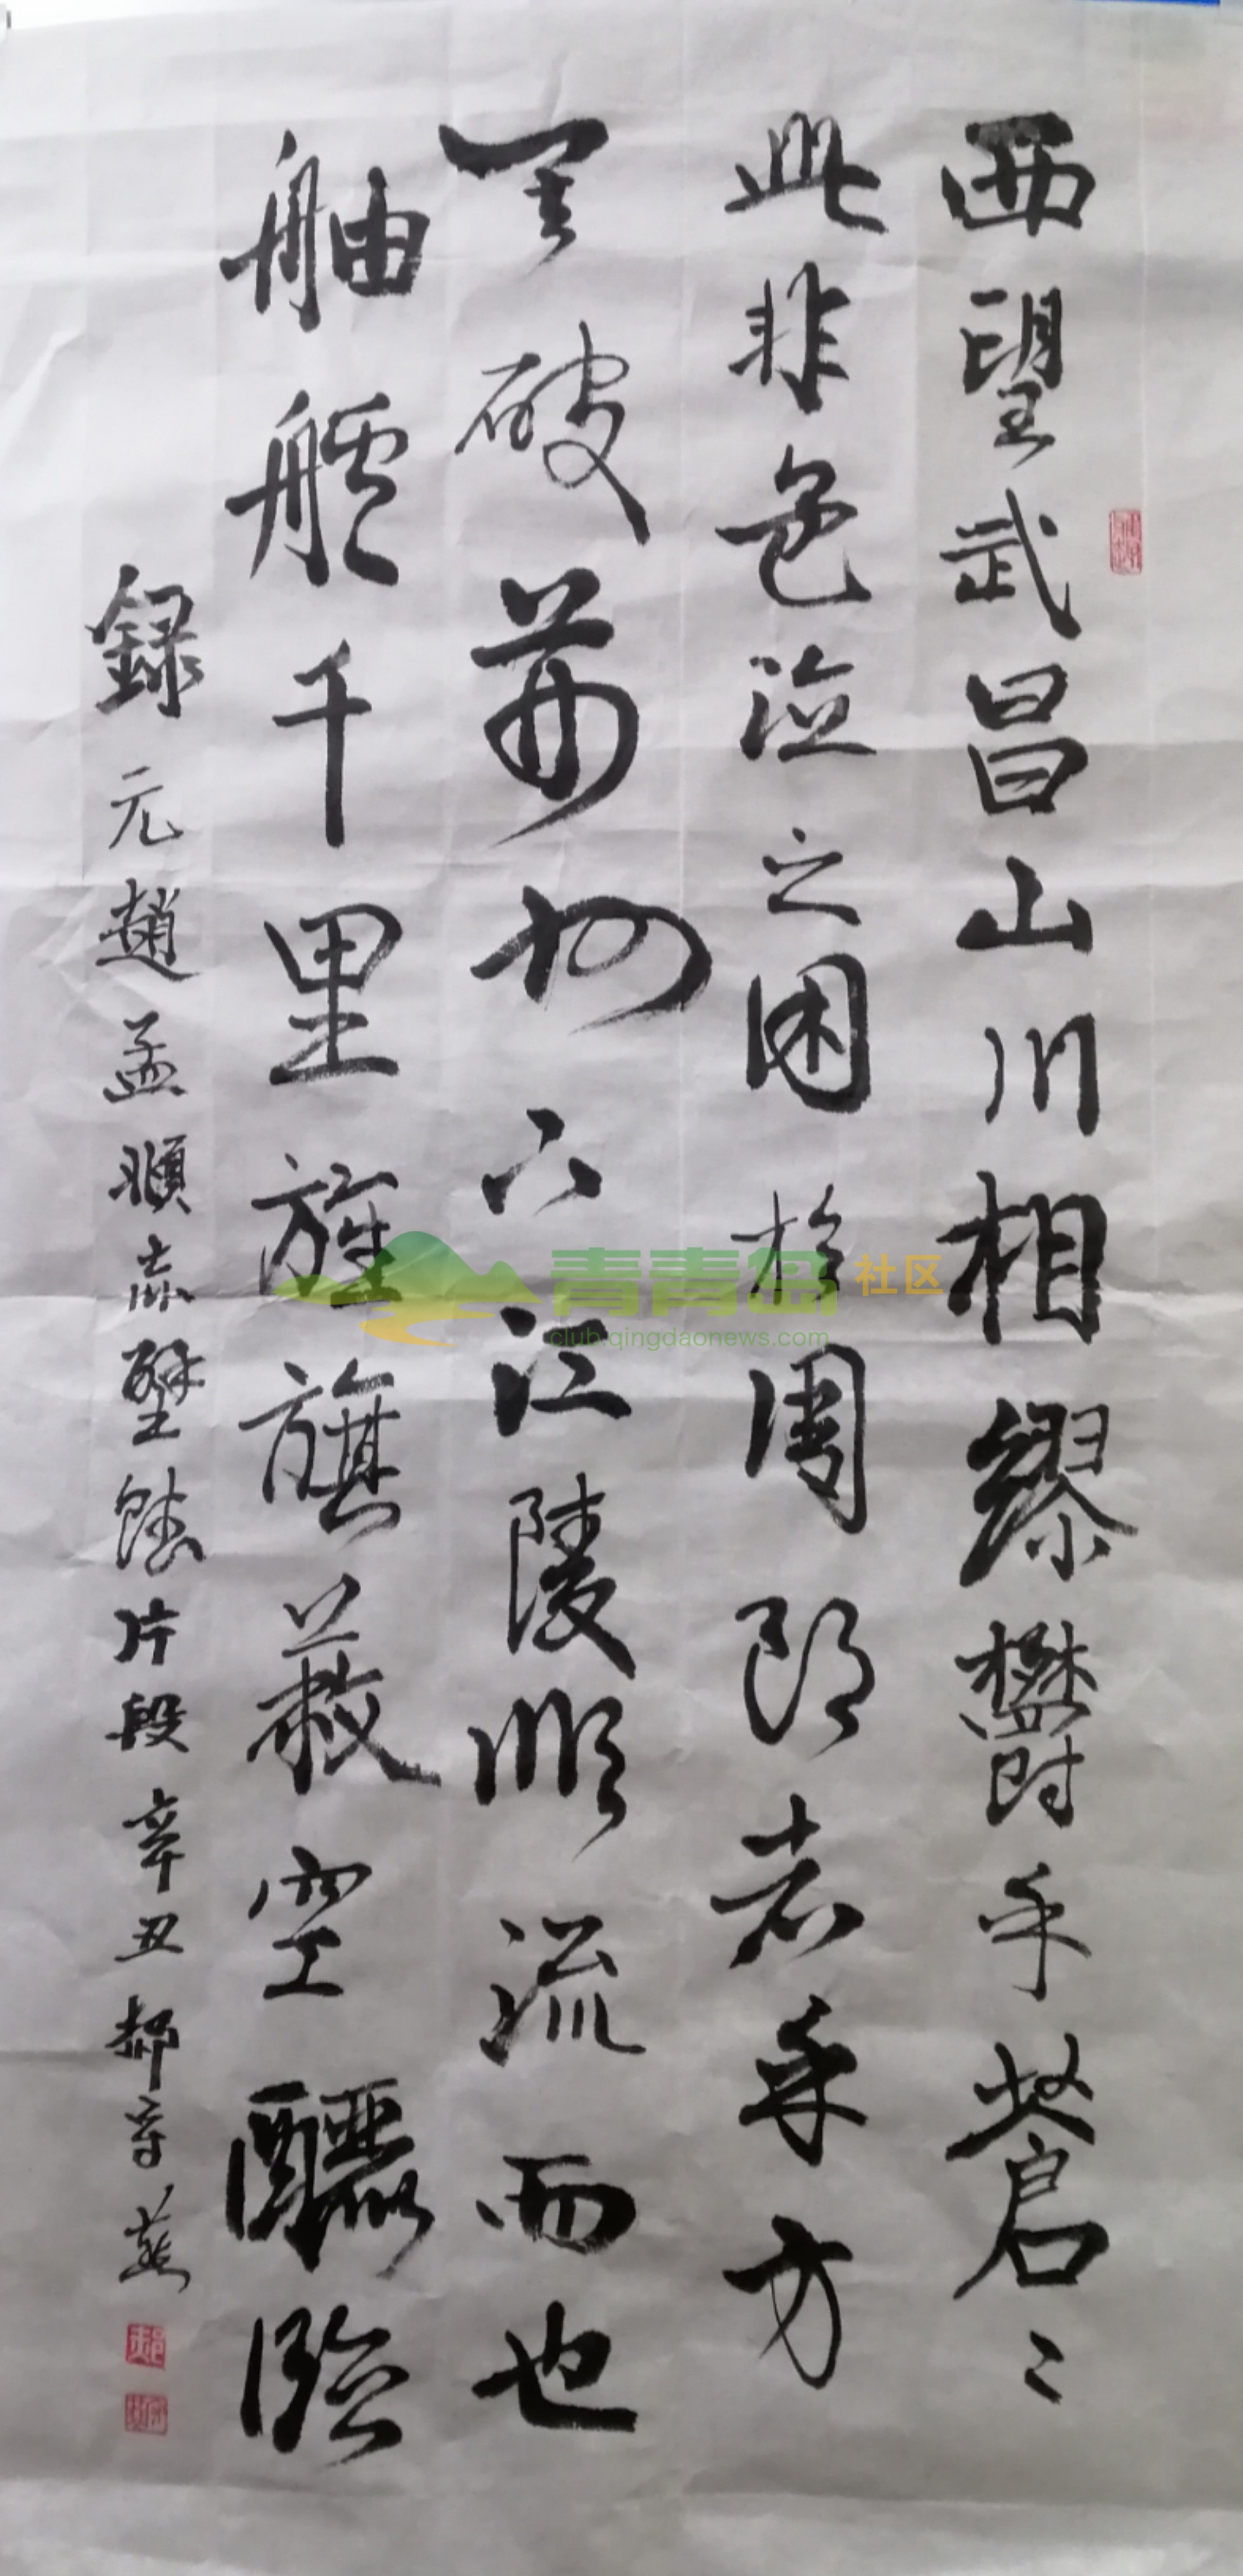 西望武昌山川相繆鬱乎蒼〻
此非孟德之困於周郎者乎方
其破荊州下江陵順流而也
舳艫千里旌旗蔽空釃臨
録元趙孟頫赤壁賦片段辛丑郝守燕
青青岛社区
club.qingdaonews.com